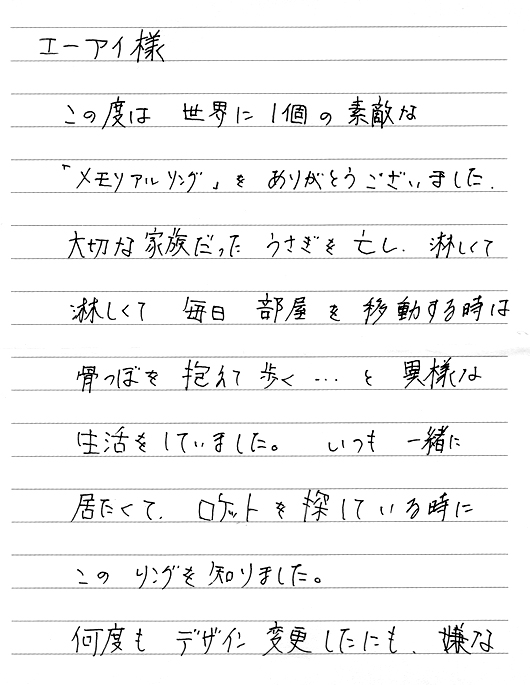 エーアイ様
この度は 世界に1個の素敵な
「メモリアルリング」を ありがとうございました.
大切な家族だった うさぎを亡し、淋しくて
淋しくて 毎日 部屋を移動する時は
骨つぼを抱えて歩く…と異様な
生活をしていました。 いつも一緒に
居たくて、ロケットを探している時に
このリングを知りました。
何度もデザイン変更したにも、嫌な